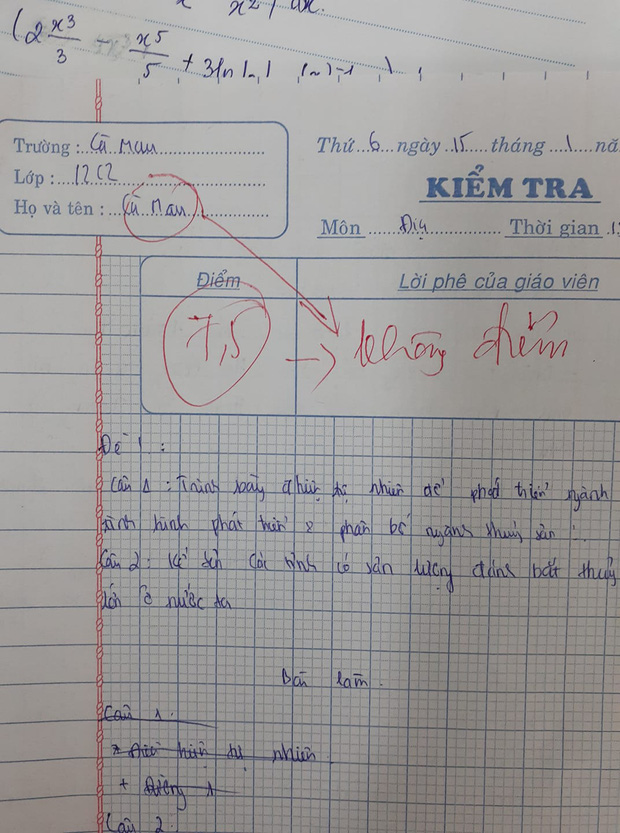 (2 x³/3 - x⁵/5 + 3ln
Trường : Cà Mau
Lớp : 12C2
Họ và tên : Cà Mau
Thứ 6 ngày 15 tháng 1 nă
KIỂM TRA
Môn Địa Thời gian
Điểm
Lời phê của giáo viên
7,5
không điểm
Đề 1 :
Câu 1 : Trình bày điều kiện tự nhiên để phát triển ngành
tình hình phát triển & phân bố ngành thuỷ sản
Câu 2 : Kể tên các tỉnh có sản lượng đánh bắt thuỷ
lớn ở nước ta
Bài làm
Câu 1 :
* Điều kiện tự nhiên
+ Đường 1
Câu 2 :